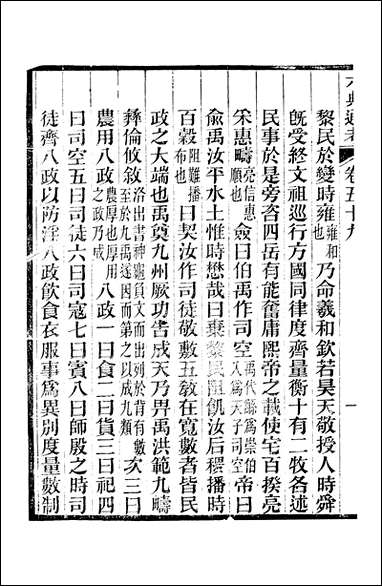 六典通考 卷五十九
黎民於變時雍雍和也乃命羲和欽若昊天敬授人時舜
旣受終文祖巡行方國同律度齊量衡十有二牧各述
民事於是旁咨四岳有能奮庸熙帝之載使宅百揆亮
采惠疇亮信惠順也僉曰伯禹作司空禹代鯀爲崇伯入爲天子司空帝曰
俞禹汝平水土惟時懋哉曰棄黎民阻飢汝后稷播時
百穀阻難播布也曰契汝作司徒敬敷五敎在寬數者皆民
政之大端也禹奠九州厥功告成天乃畀禹洪範九疇
彝倫攸敘洛出書神龜負文而出列於背有數至於九禹遂因而第之以成九類次三曰
農用八政農厚也厚用之政乃成八政一曰食二曰貨三曰祀四
曰司空五曰司徒六曰司寇七曰賓八曰師殷之時司
徒齊八政以防淫八政飲食衣服事爲異別度量數制